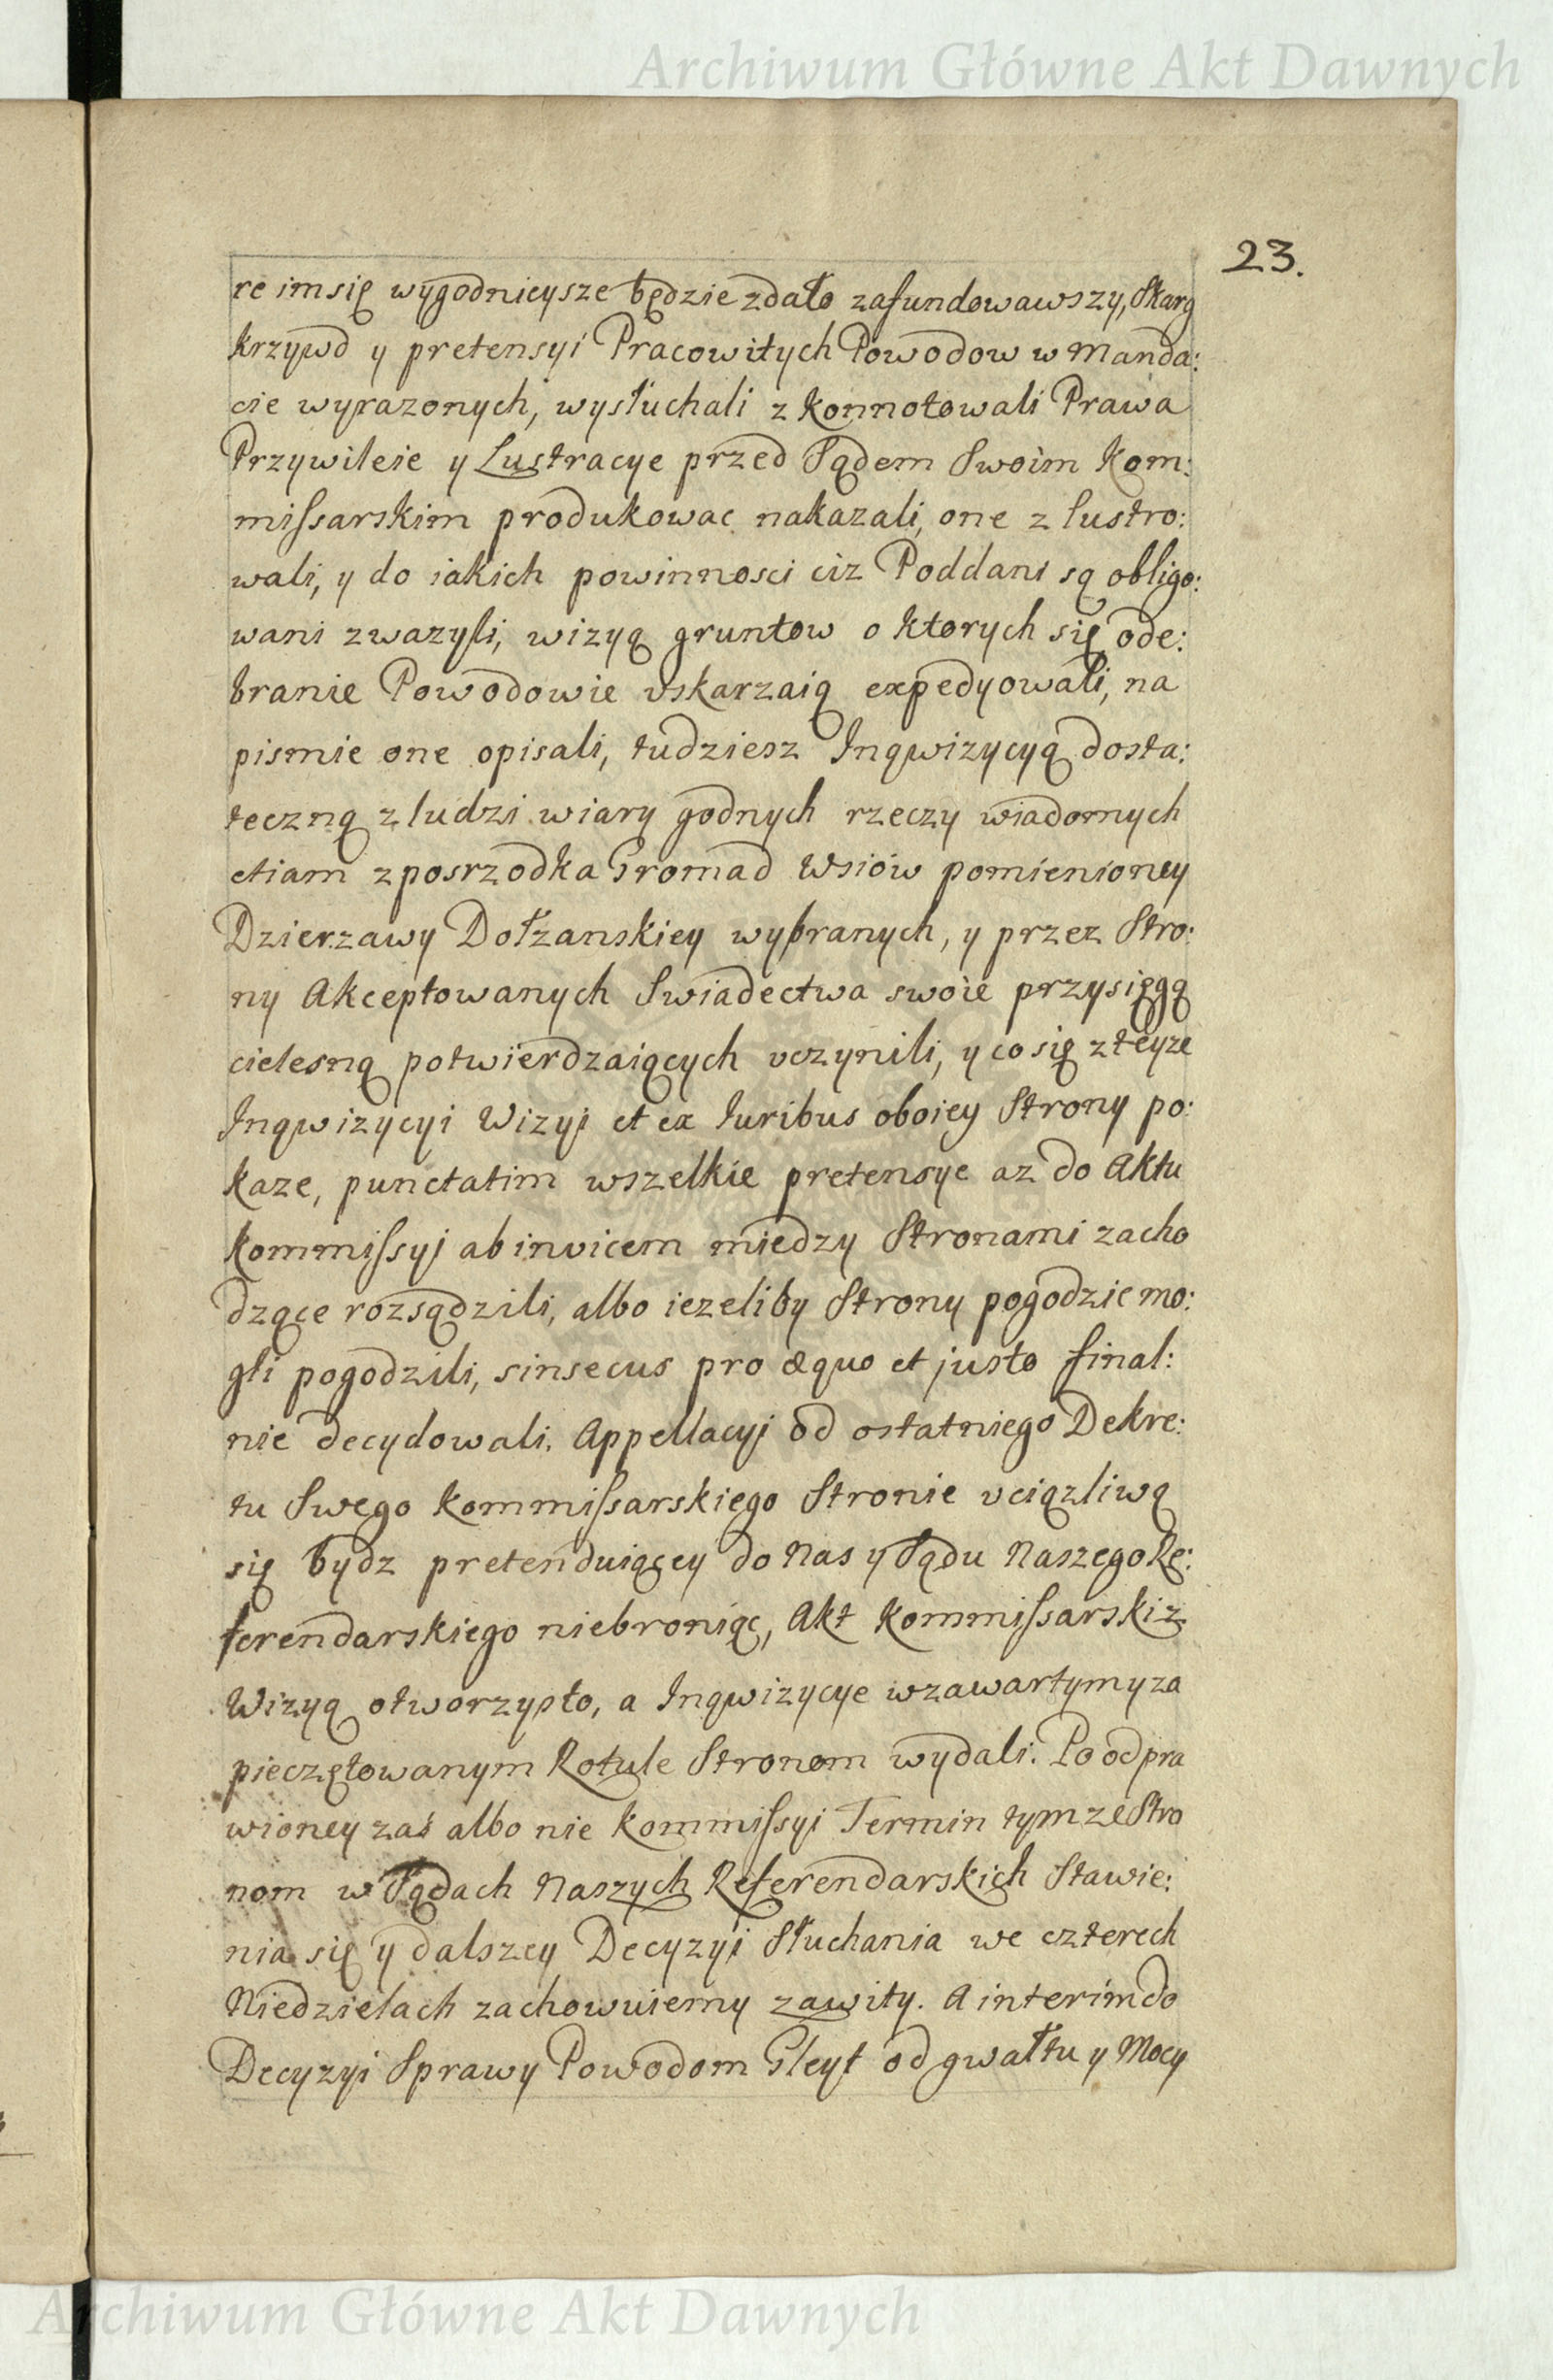 Archiwum Główne Akt Dawnych
23.
re im się wygodnieysze będzie zdało zafundowawszy, Skarg
krzywd y pretensyi Pracowitych Powodow w Manda:
cie wyrazonych, wysłuchali z konnotowali Prawa
Przywileie y Lustracye przed Sądem Swoim Kom:
missarskim produkowac nakazali, one z lustro:
wali, y do iakich powinnosci ciz Poddani są obligo:
wani zwazyli, wizyą gruntow o ktorych się ode:
branie Powodowie uskarzaią expedyowali, na
pismie one opisali, tudziesz Inqwizycyą dosta:
teczną z ludzi wiary godnych rzeczy wiadomych
etiam z posrzodka Gromad Wsiow pomienioney
Dzierzawy Dołzanskiey wybranych, y przez Stro:
ny Akceptowanych Swiadectwa swoie przysięgą
cielesną potwierdzaiących uczynili, y co się z teyze
Inqwizycyi Wizyi et ex Iuribus oboiey Strony po:
kaze, punctatim wszelkie pretensye az do Aktu
Kommissyj ab invicem miedzy Stronami zacho
dzące rozsądzili, albo iezeliby Strony pogodzic mo:
gli pogodzili, sinsecus pro æquo et justo final:
nie decydowali. Appellacyj od ostatniego Dekre:
tu Swego Kommissarskiego Stronie uciązliwą
się bydz pretenduiącey do Nas y Sądu Naszego Re:
ferendarskiego niebroniąc, Akt Kommissarski z
Wizyą otworzysto, a Inqwizycye w zawartym y za
pieczętowanym Rotule Stronom wydali. Po odpra
wioney zaś albo nie Kommissyi Termin tymze Stro
nom w Sądach Naszych Referendarskich Stawie:
nia się y dalszey Decyzyi Słuchania we czterech
Niedzielach zachowuiemy zawity. A interim do
Decyzyi Sprawy Powodom Gleyt od gwałtu y Mocy
Archiwum Główne Akt Dawnych